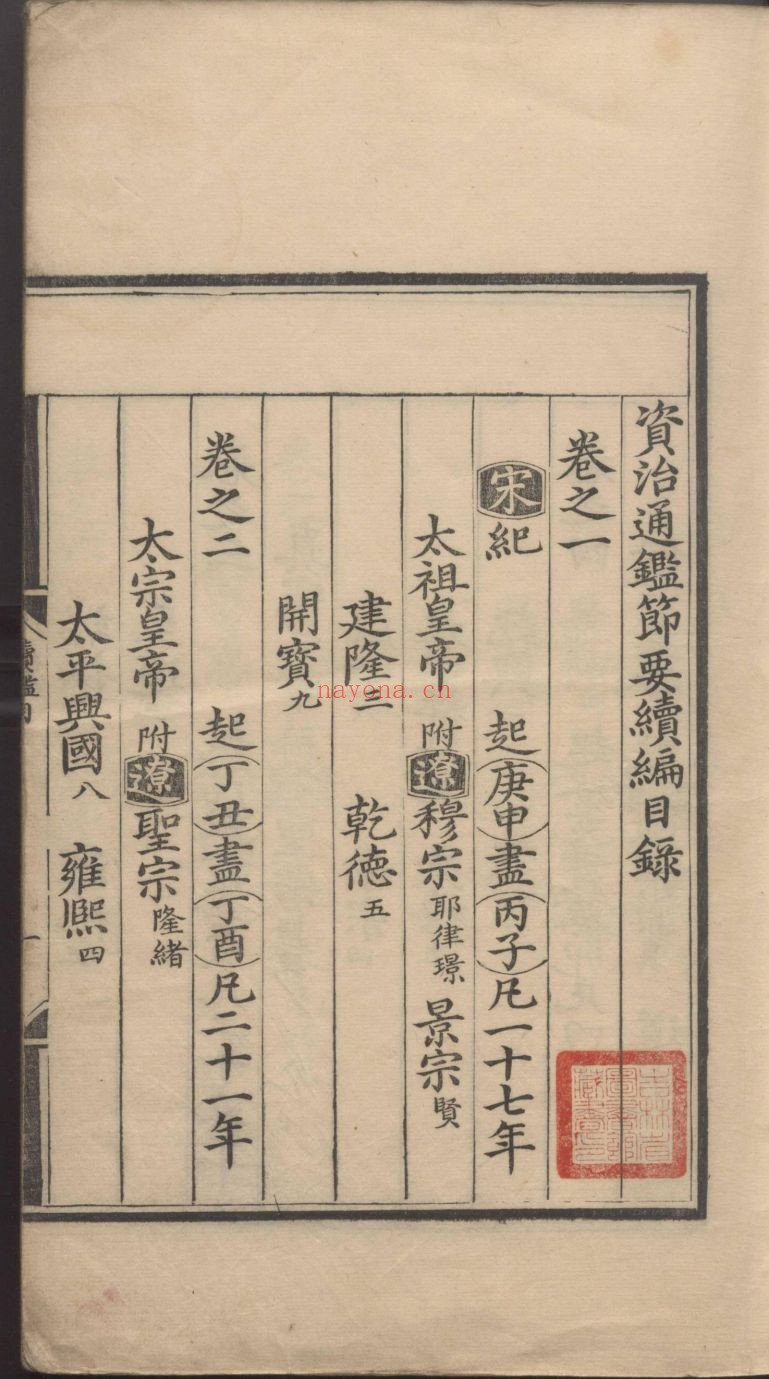 資治通鑑節要續編目錄
卷之一
宋紀 起庚申盡丙子凡一十七年
太祖皇帝 附遼穆宗耶律璟 景宗賢
建隆三 乾德五
開寶九
卷之二 起丁丑盡丁酉凡二十一年
太宗皇帝 附遼聖宗隆緒
太平興國八 雍熙四
nayona.cn